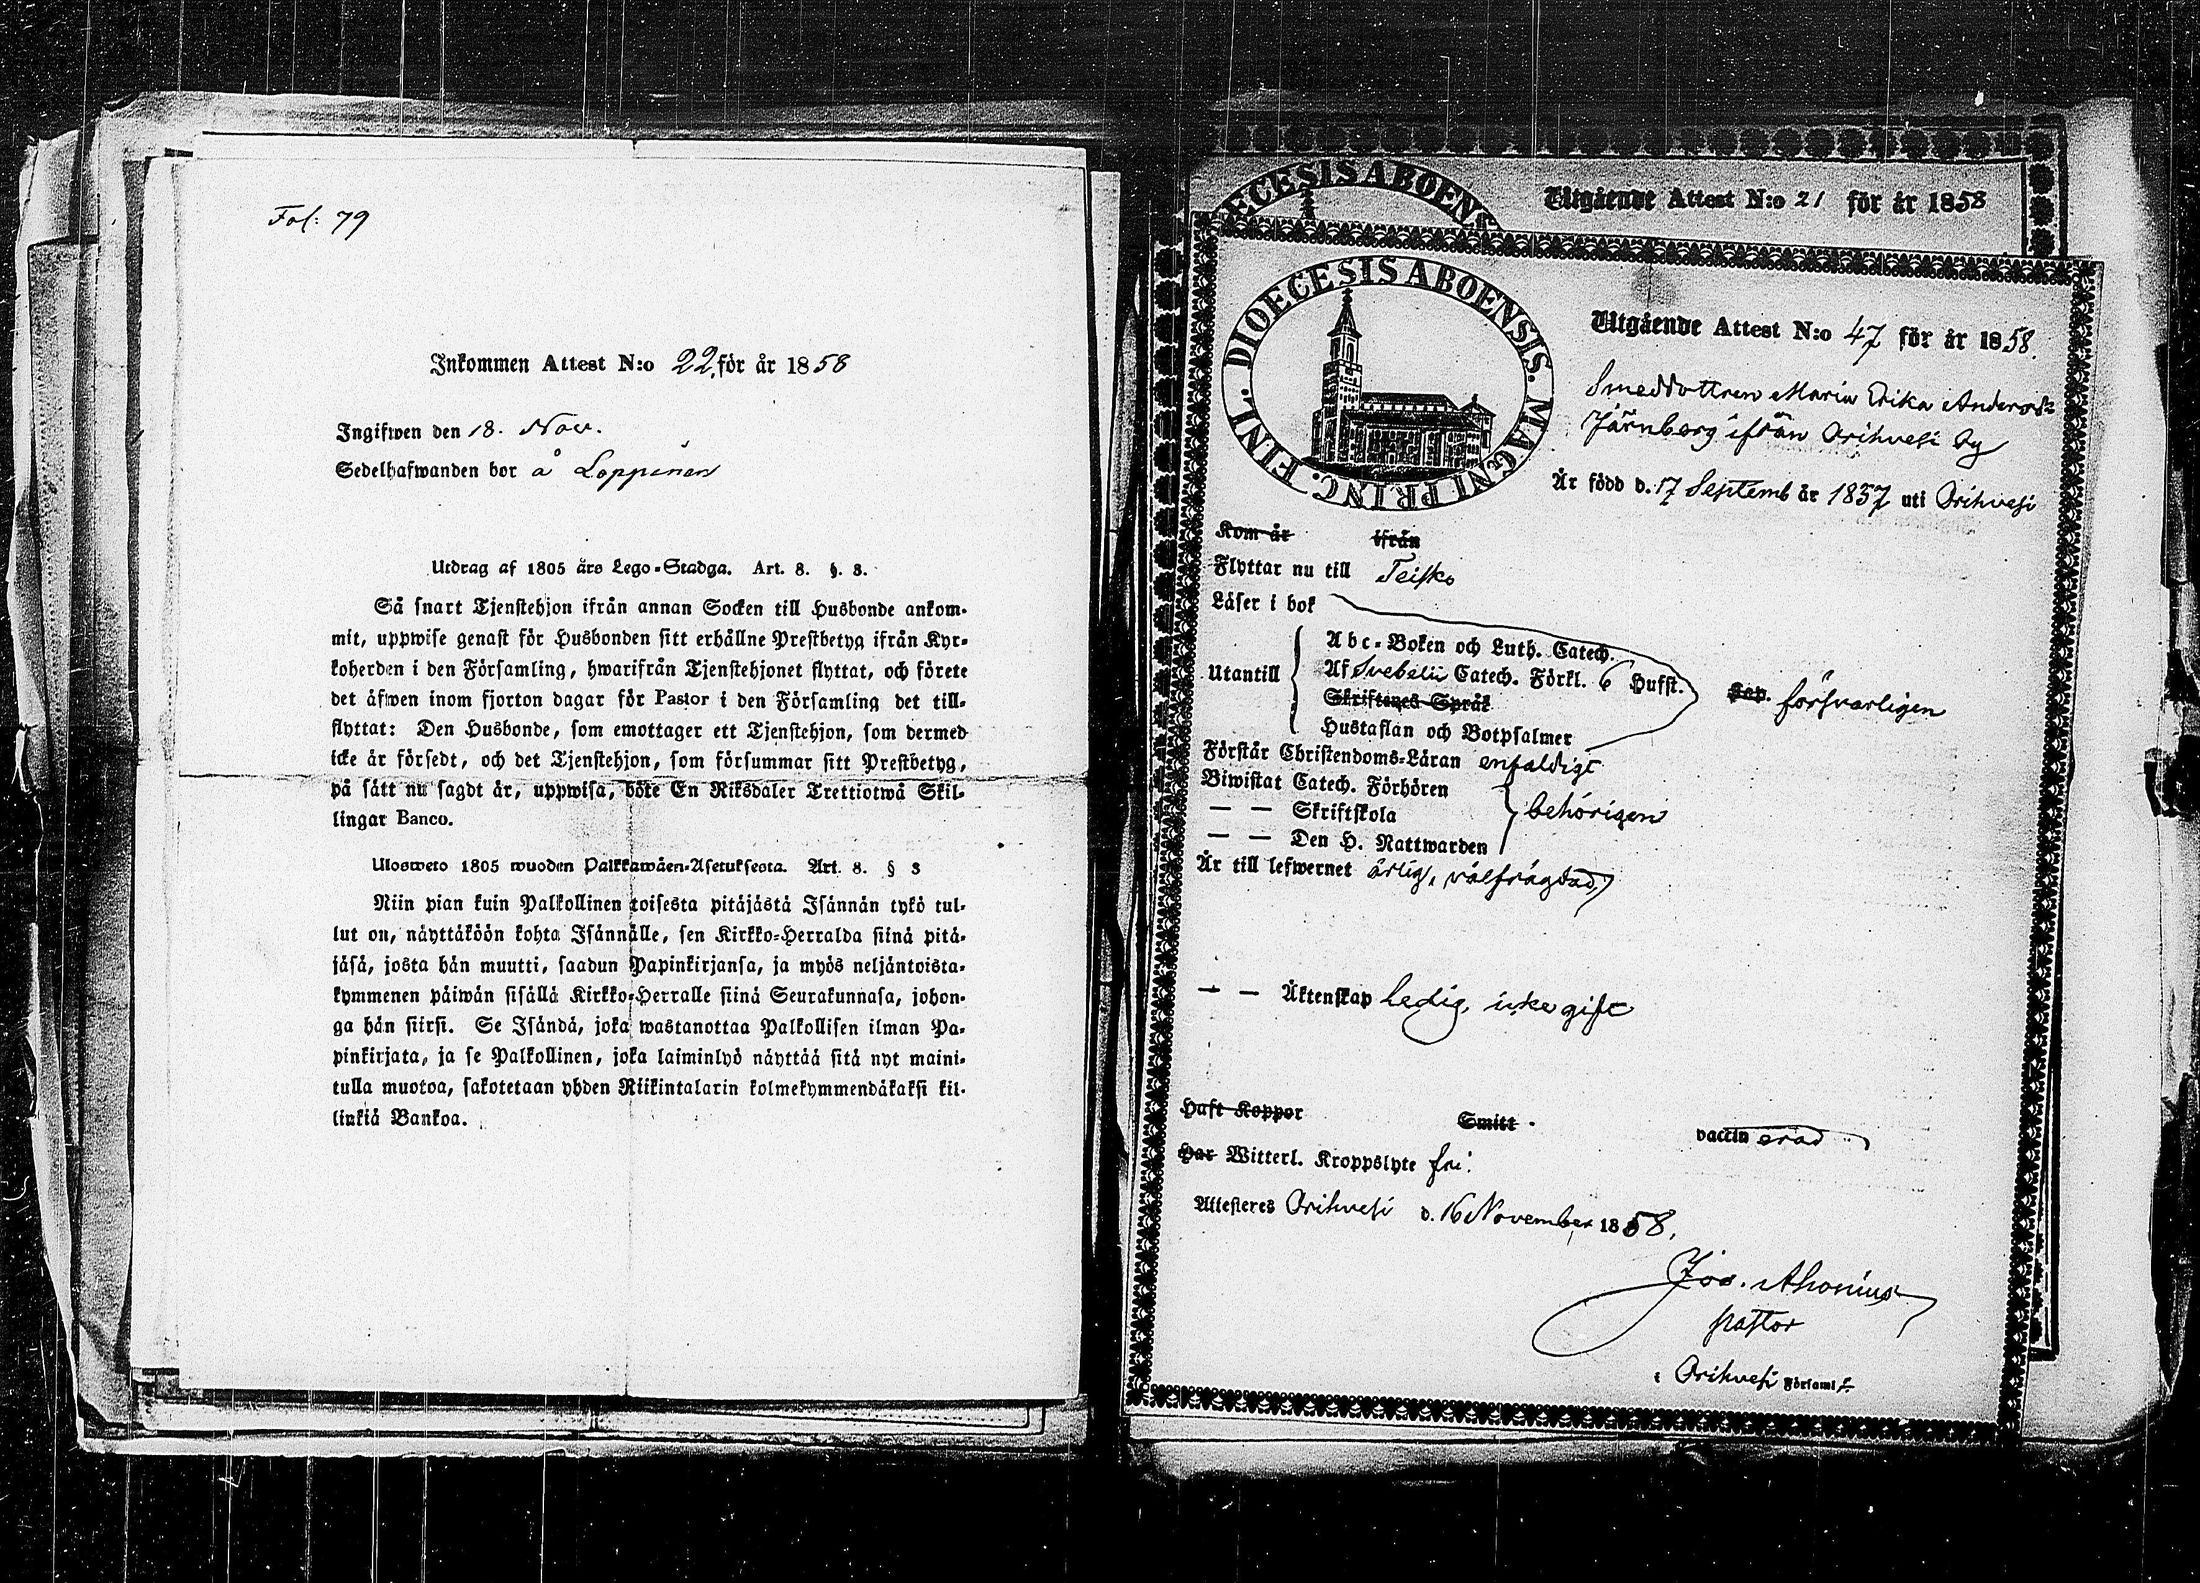 Fol: 79
Inkommen Attest N:o 22. för år 1858
Ingifwen den 18. Nov.
Sedelhafwanden bor å Loppinen
Utdrag af 1805 års Lego-Stadga. Art. 8. §. 3.
Så snart Tjenstehjon ifrån annan Socken till Husbonde ankom-
mit, uppwise genast för Husbonden sitt erhållne Prestbetyg ifrån Kyr-
koherden i den Församling, hwarifrån Tjenstehjonet flyttat, och förete
det äfwen inom fjorton dagar för Pastor i den Församling det till-
flyttat: Den Husbonde, som emottager ett Tjenstehjon, som dermed
icke är försedt, och det Tjenstehjon, som försummar sitt Prestbetyg,
på sätt nu sagdt är, uppwisa, böte En Riksdaler Trettiotwå Skil-
lingar Banco.
Ulosweto 1805 wuoden Palkkawäen-Asetuksesta. Art. 8. § 3
Niin pian kuin Palkollinen toisesta pitäjästä Isännän tykö tul-
lut on, näyttäköön kohta Isännälle, sen Kirkko-Herralda siinä pitä-
jäsä, josta hän muutti, saadun Papinkirjansa, ja myös neljäntoista-
kymmenen päiwän sisällä Kirkko-Herralle siinä Seurakunnasa, johon-
ga hän siirsi. Se Isändä, joka wastanottaa Palkollisen ilman Pa-
pinkirjata, ja se Palkollinen, joka laiminlyö näyttää sitä nyt maini-
tulla muotoa, sakotetaan yhden Riikintalarin kolmekymmendäkaksi kil-
linkiä Bankoa.
ECESIS ABOENS
Utgående Attest N:o 21 för år 1858
DIOECESIS ABOENSIS. MAGNI PRINC. FINL.
Utgående Attest N:o 47 för år 1858.
Smeddottren Maria Erika Andersdr
Järnberg ifrån Orihvesi by
Är född d. 17 Septemb år 1837 uti Orihvesi
Kom år ifrån
Flyttar nu till Teisko
Läser i bok
Abc-Boken och Luth. Catech.
Utantill Af Svebelii Catech. Förkl. 6 Hufst. Cap. försvarligen
Skriftenes Språk
Hustaflan och Botpsalmer
Förstår Christendoms-Läran enfaldigt
Biwistat Catech. Förhören
— — Skriftskola behörigen
— — Den H. Nattwarden
Är till lefwernet ärlig, välfrägdad,
— — Äktenskap ledig, icke gift
Haft Koppor Smitt. vaccinerad
Har Witterl. Kroppslyte fri.
Attesteres Orihvesi d. 16 November 1858.
Jos. Ahonius
pastor
i Orihvesi Församl